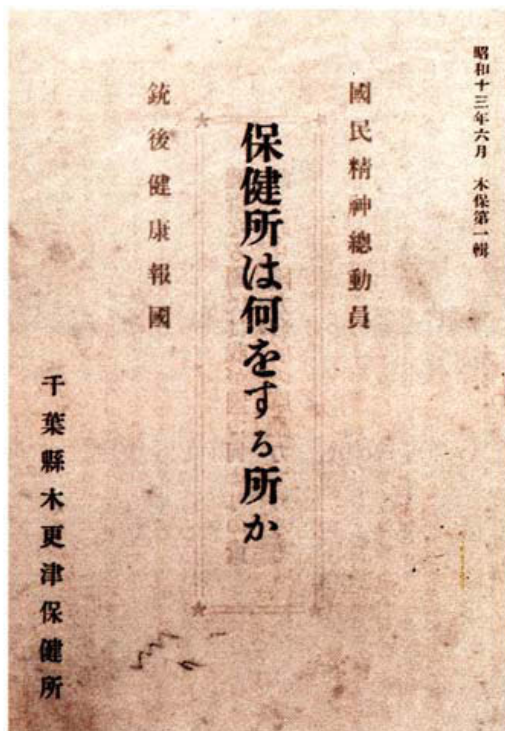 昭和十三年六月 木保第一輯
國民精神總動員
保健所は何をする所か
銃後健康報國
千葉縣木更津保健所